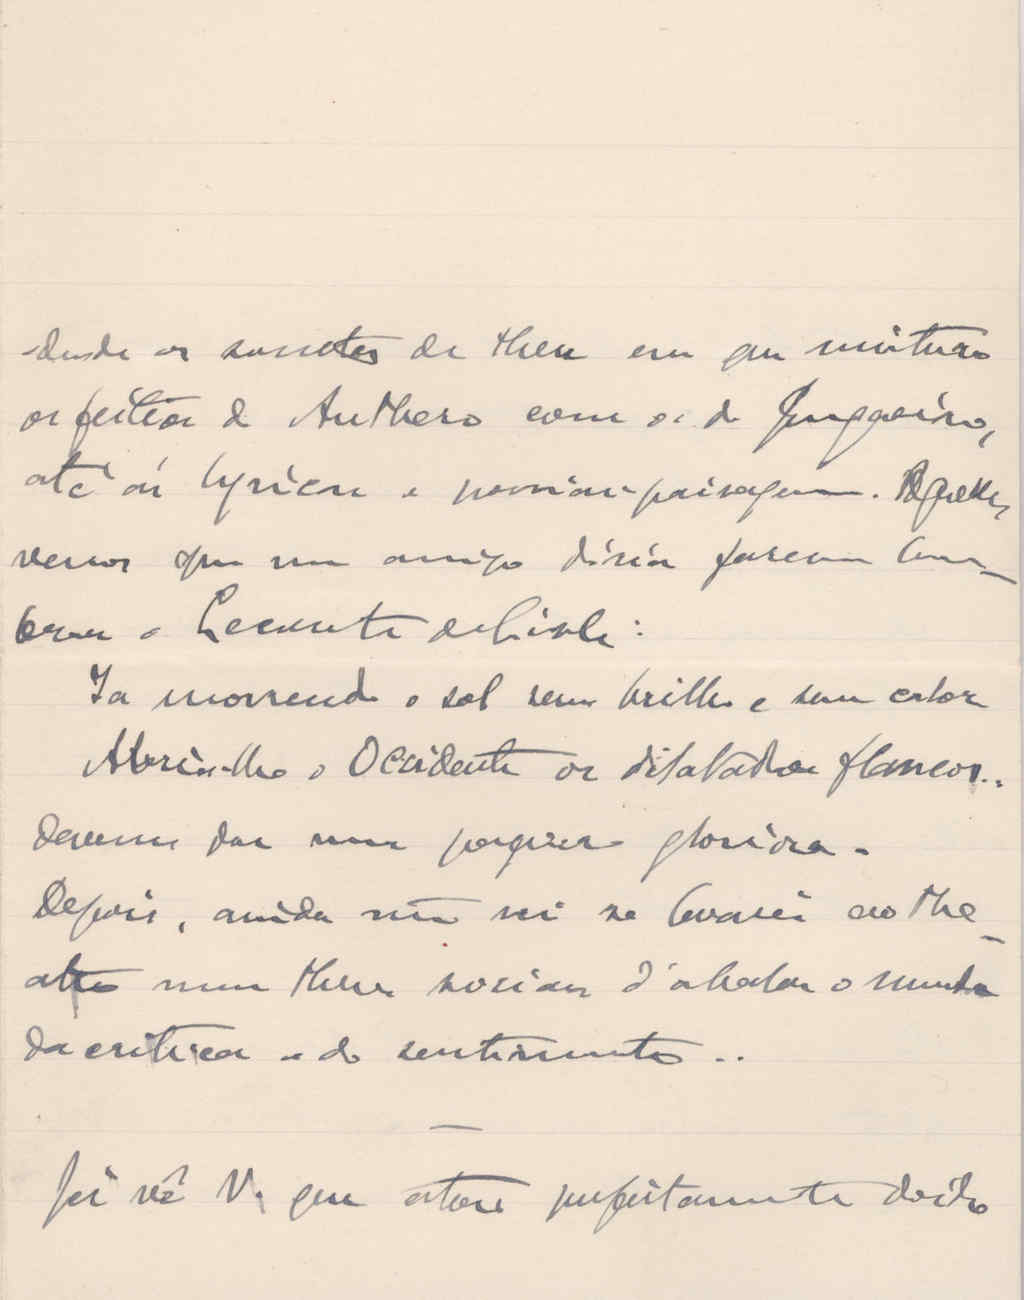 desde os sonetos de these em que misturo
os feitios d'Anthero com os do Junqueiro,
até ás lyricas e poesias-paisagem. Aquelles
versos que um amigo diria fazerem lem-
brar o Leconte de Lisle:
Ia morrendo o sol sem brilho e sem calor
Abria-lhe o Occidente os dilatados flancos..
devem dar uma gloriosa.
Depois, ainda não sei se levarei ao the-
atro uma these social d'abalar o mundo
da critica e do sentimento...
Já vê V. que estou perfeitamente doido